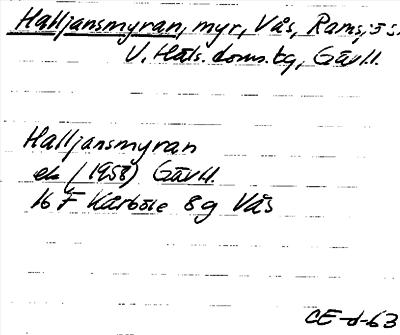 Halljansmyran, myr, Vås, Ramsjö s.
V. Häls. doms.tg, Gävl.l.
Halljansmyran
ek (1958) Gävl.l.
16 F Kårböle 8g Vås
CE-d-63